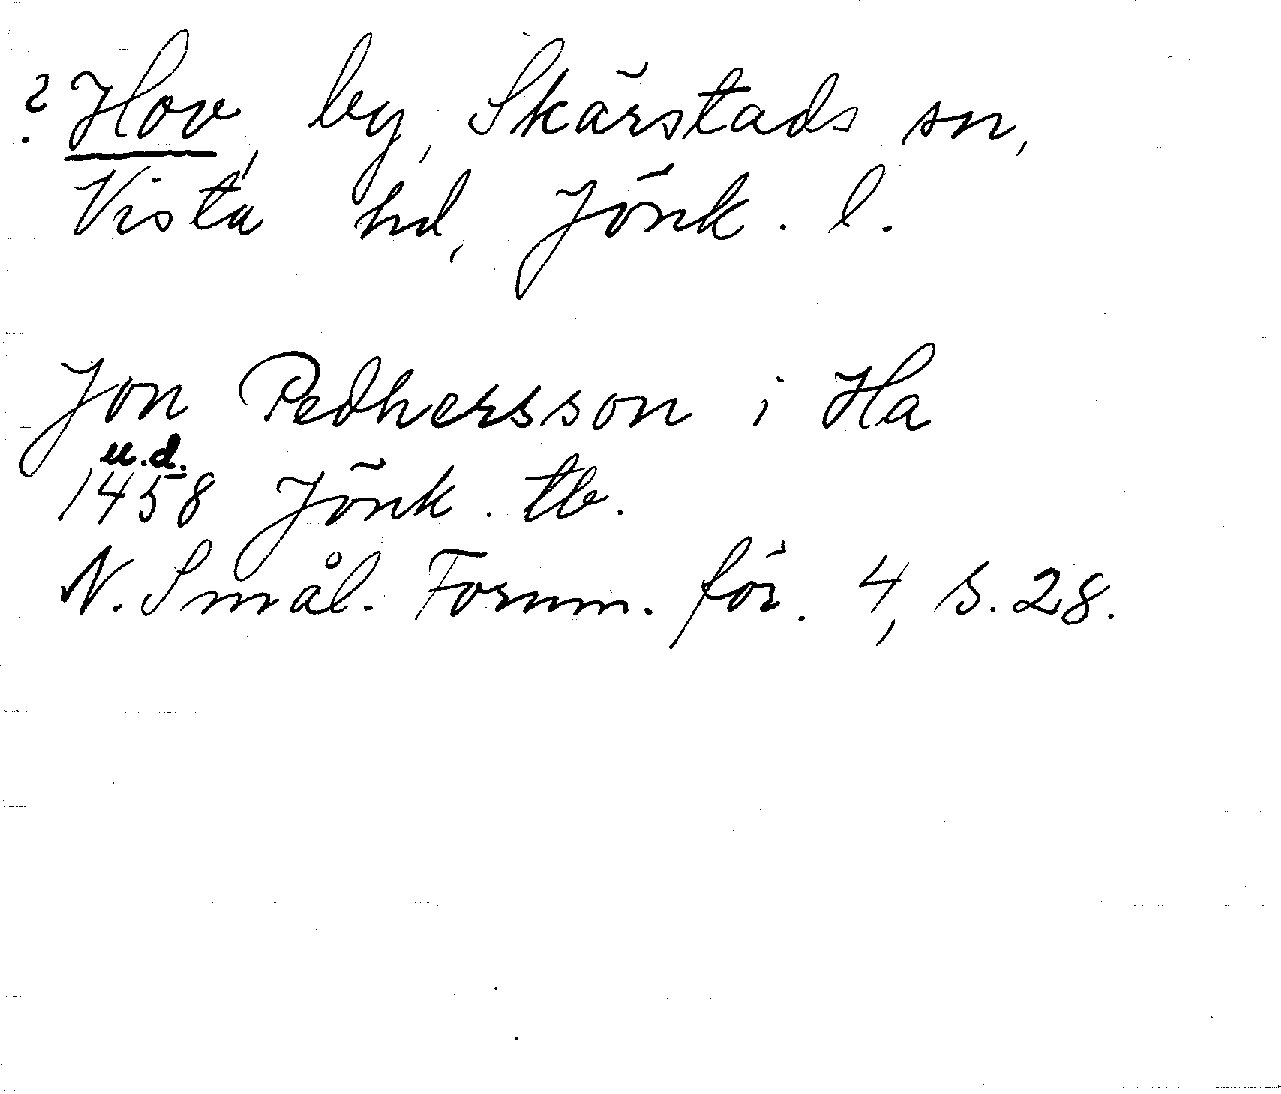 ? Hov, by, Skärstads sn,
Vista hd, Jönk. l.
Jon Pedhersson i Ha
u.d.
1458 Jönk. tb.
N. Smål. Fornm. för. 4, s. 28.